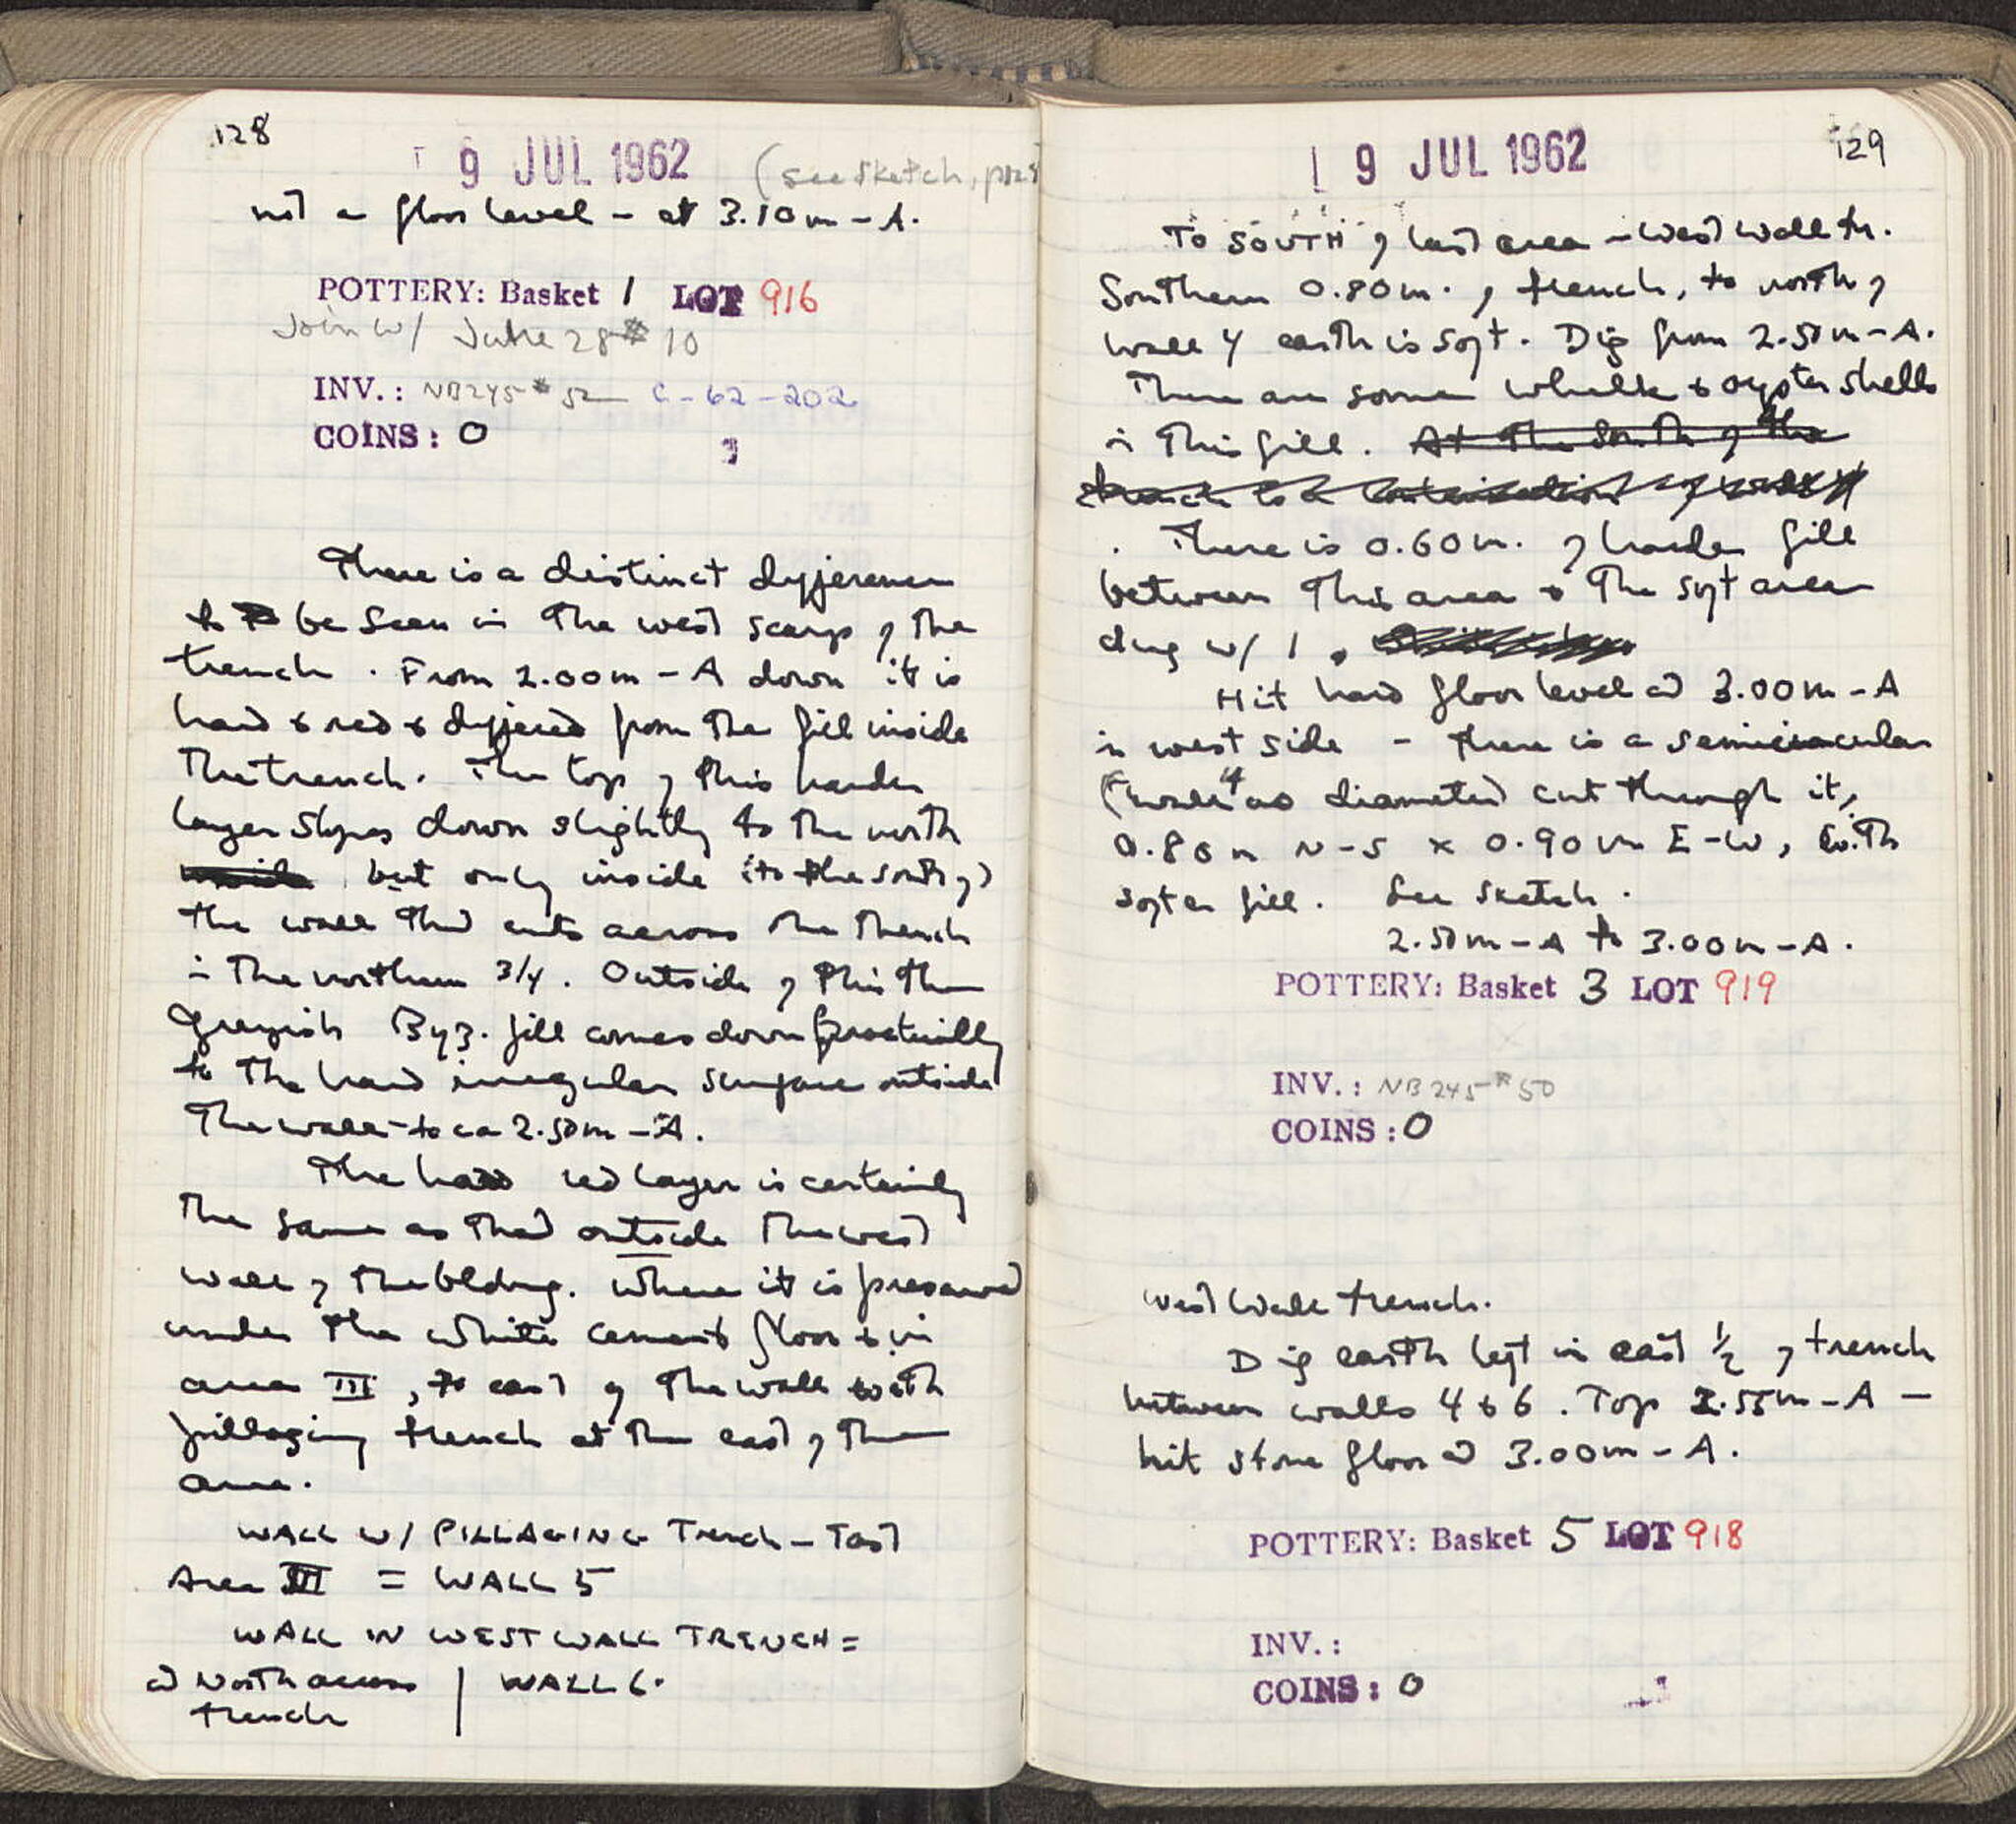 128
9 JUL 1962 (see sketch, p129
not a floor level – at 3.10m – A.
POTTERY: Basket 1 LOT 916
Join w/ June 28 # 10
INV.: NB245 # 52 C-62-202
COINS: 0
There is a distinct difference
to be seen in the west scarp of the
trench. From 2.00m – A down it is
hard & red & different from the fill inside
the trench. The top of this harder
layer slopes down slightly to the north
but only inside (to the south of)
the wall that cuts across the trench
in the northern 3/4. Outside of this the
greyish Byz. fill comes down practically
to the hard irregular surface outside
the wall – to ca 2.50m – A.
The hard red layer is certainly
the same as that outside the west
wall of the bldng. Where it is preserved
under the white cement floor & in
area III, to east of the wall with
pillaging trench at the east of the
area.
WALL W/ PILLAGING Trench – East
Area III = WALL 5
WALL IN WEST WALL TRENCH =
at North across | WALL 6.
trench
19 JUL 1962 129
To SOUTH of last area – West wall tr.
Southern 0.80m. of trench, to north of
wall 4 earth is soft. Dig from 2.50m – A.
There are some whelk & oyster shells
in this fill. At the South of the
. There is 0.60m. of harder fill
between this area & the soft area
dug w/ 1.
Hit hard floor level at 3.00m – A
in west side – there is a semicircular
(wall 4 as diameter) cut through it,
0.80m N-S x 0.90m E-W, with
softer fill. See sketch.
2.50m – A to 3.00m – A.
POTTERY: Basket 3 LOT 919
INV.: NB245 # 50
COINS: 0
West Wall trench.
Dig earth left in east 1/2 of trench
between walls 4 & 6. Top 2.55m – A –
hit stone floor at 3.00m – A.
POTTERY: Basket 5 LOT 918
INV.:
COINS: 0